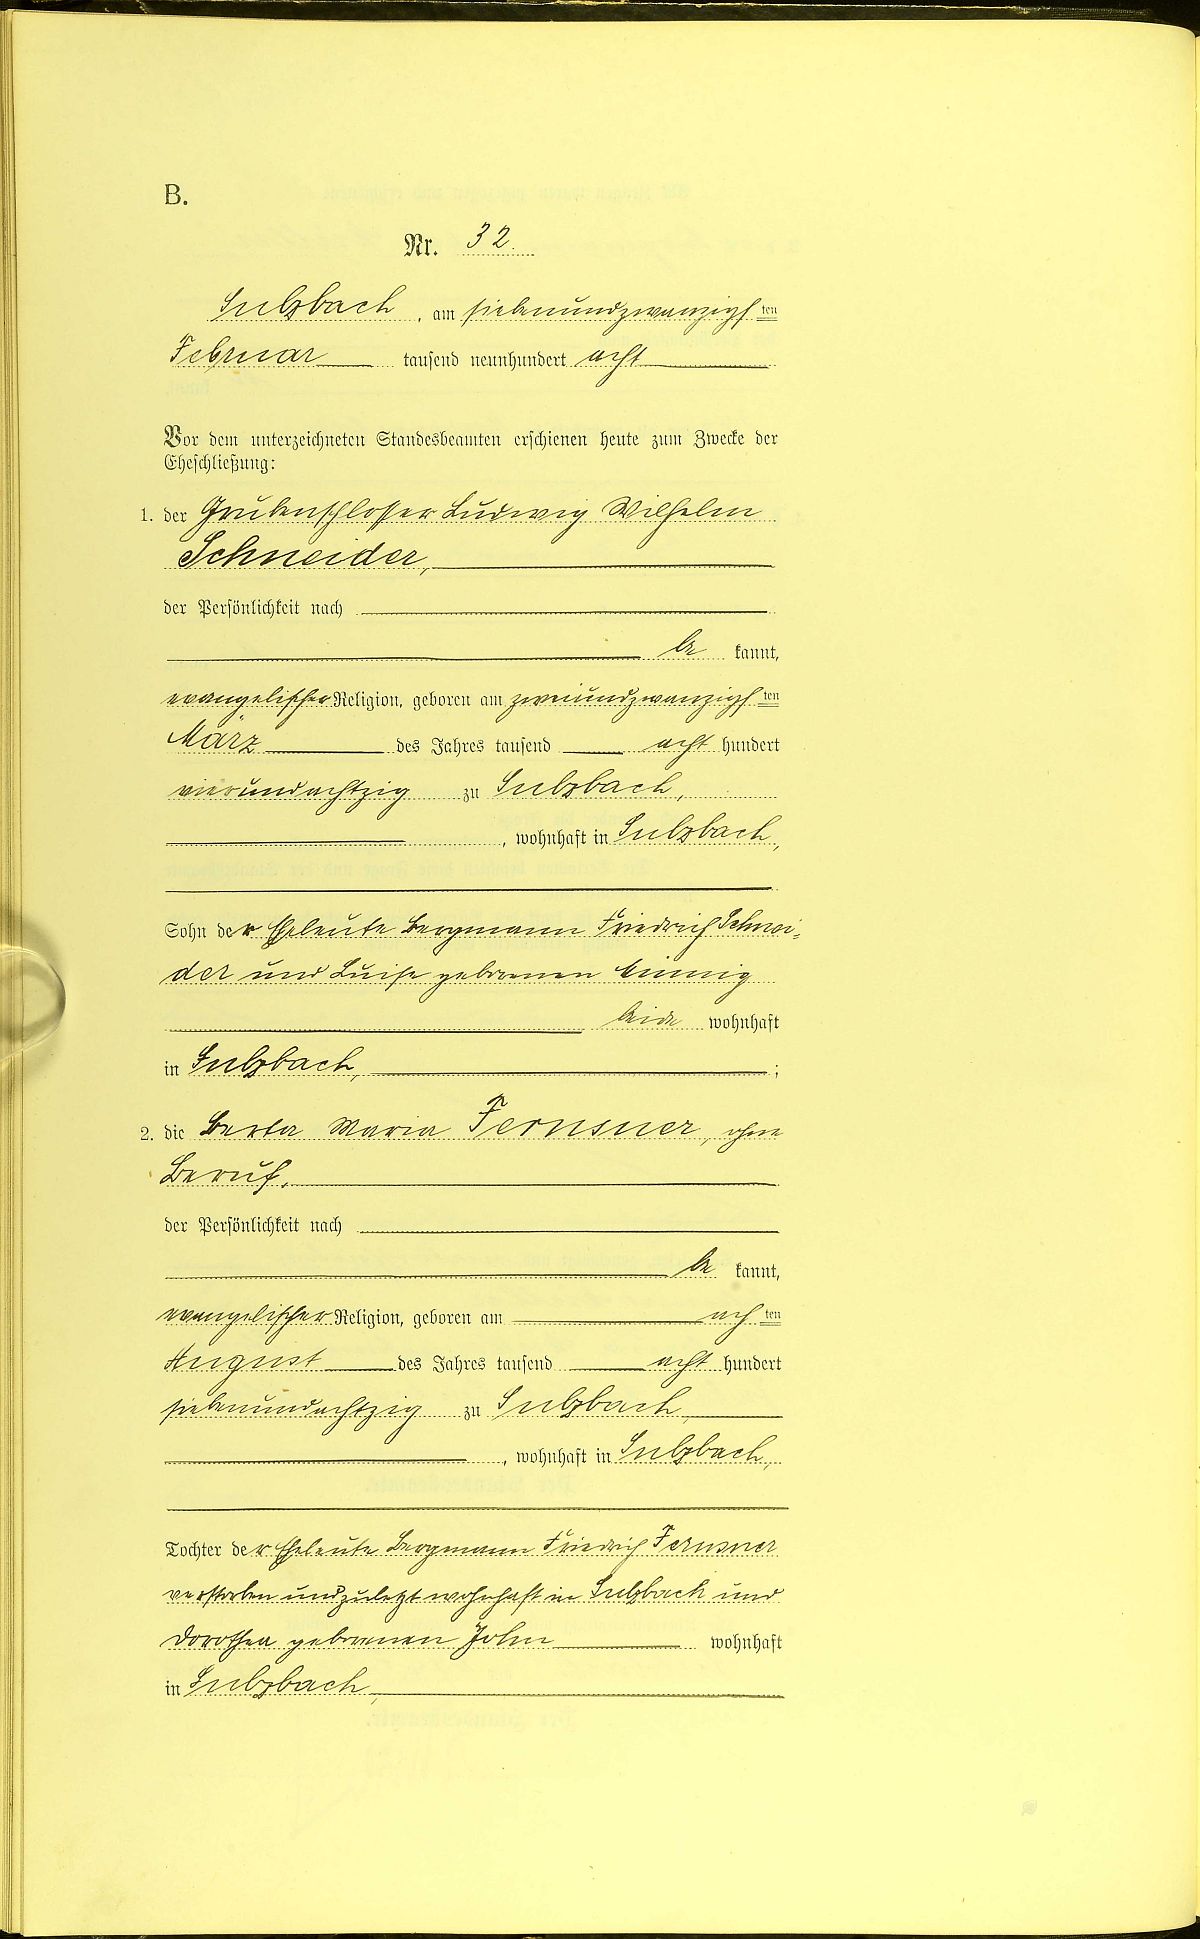 B.
Nr. 32.
Sulzbach, am siebenundzwanzigsten
Februar tausend neunhundert acht
Vor dem unterzeichneten Standesbeamten erschienen heute zum Zwecke der
Eheschließung:
1. der Grubenschlosser Ludwig Wilhelm
Schneider,
der Persönlichkeit nach
be kannt,
evangelischer Religion, geboren am zweiundzwanzigsten
März des Jahres tausend acht hundert
vierundachtzig zu Sulzbach,
, wohnhaft in Sulzbach,
Sohn der Eheleute Bergmann Friedrich Schnei-
der und Luise geborenen
beide wohnhaft
in Sulzbach, ;
2. die Berta Maria Fernsner, ohne
Beruf,
der Persönlichkeit nach
be kannt,
evangelischer Religion, geboren am achten
August des Jahres tausend acht hundert
siebenundachtzig zu Sulzbach,
, wohnhaft in Sulzbach,
Tochter der Eheleute Bergmann Friedrich Fernsner
verstorben und zuletzt wohnhaft in Sulzbach und
Dorothea geborenen John wohnhaft
in Sulzbach,